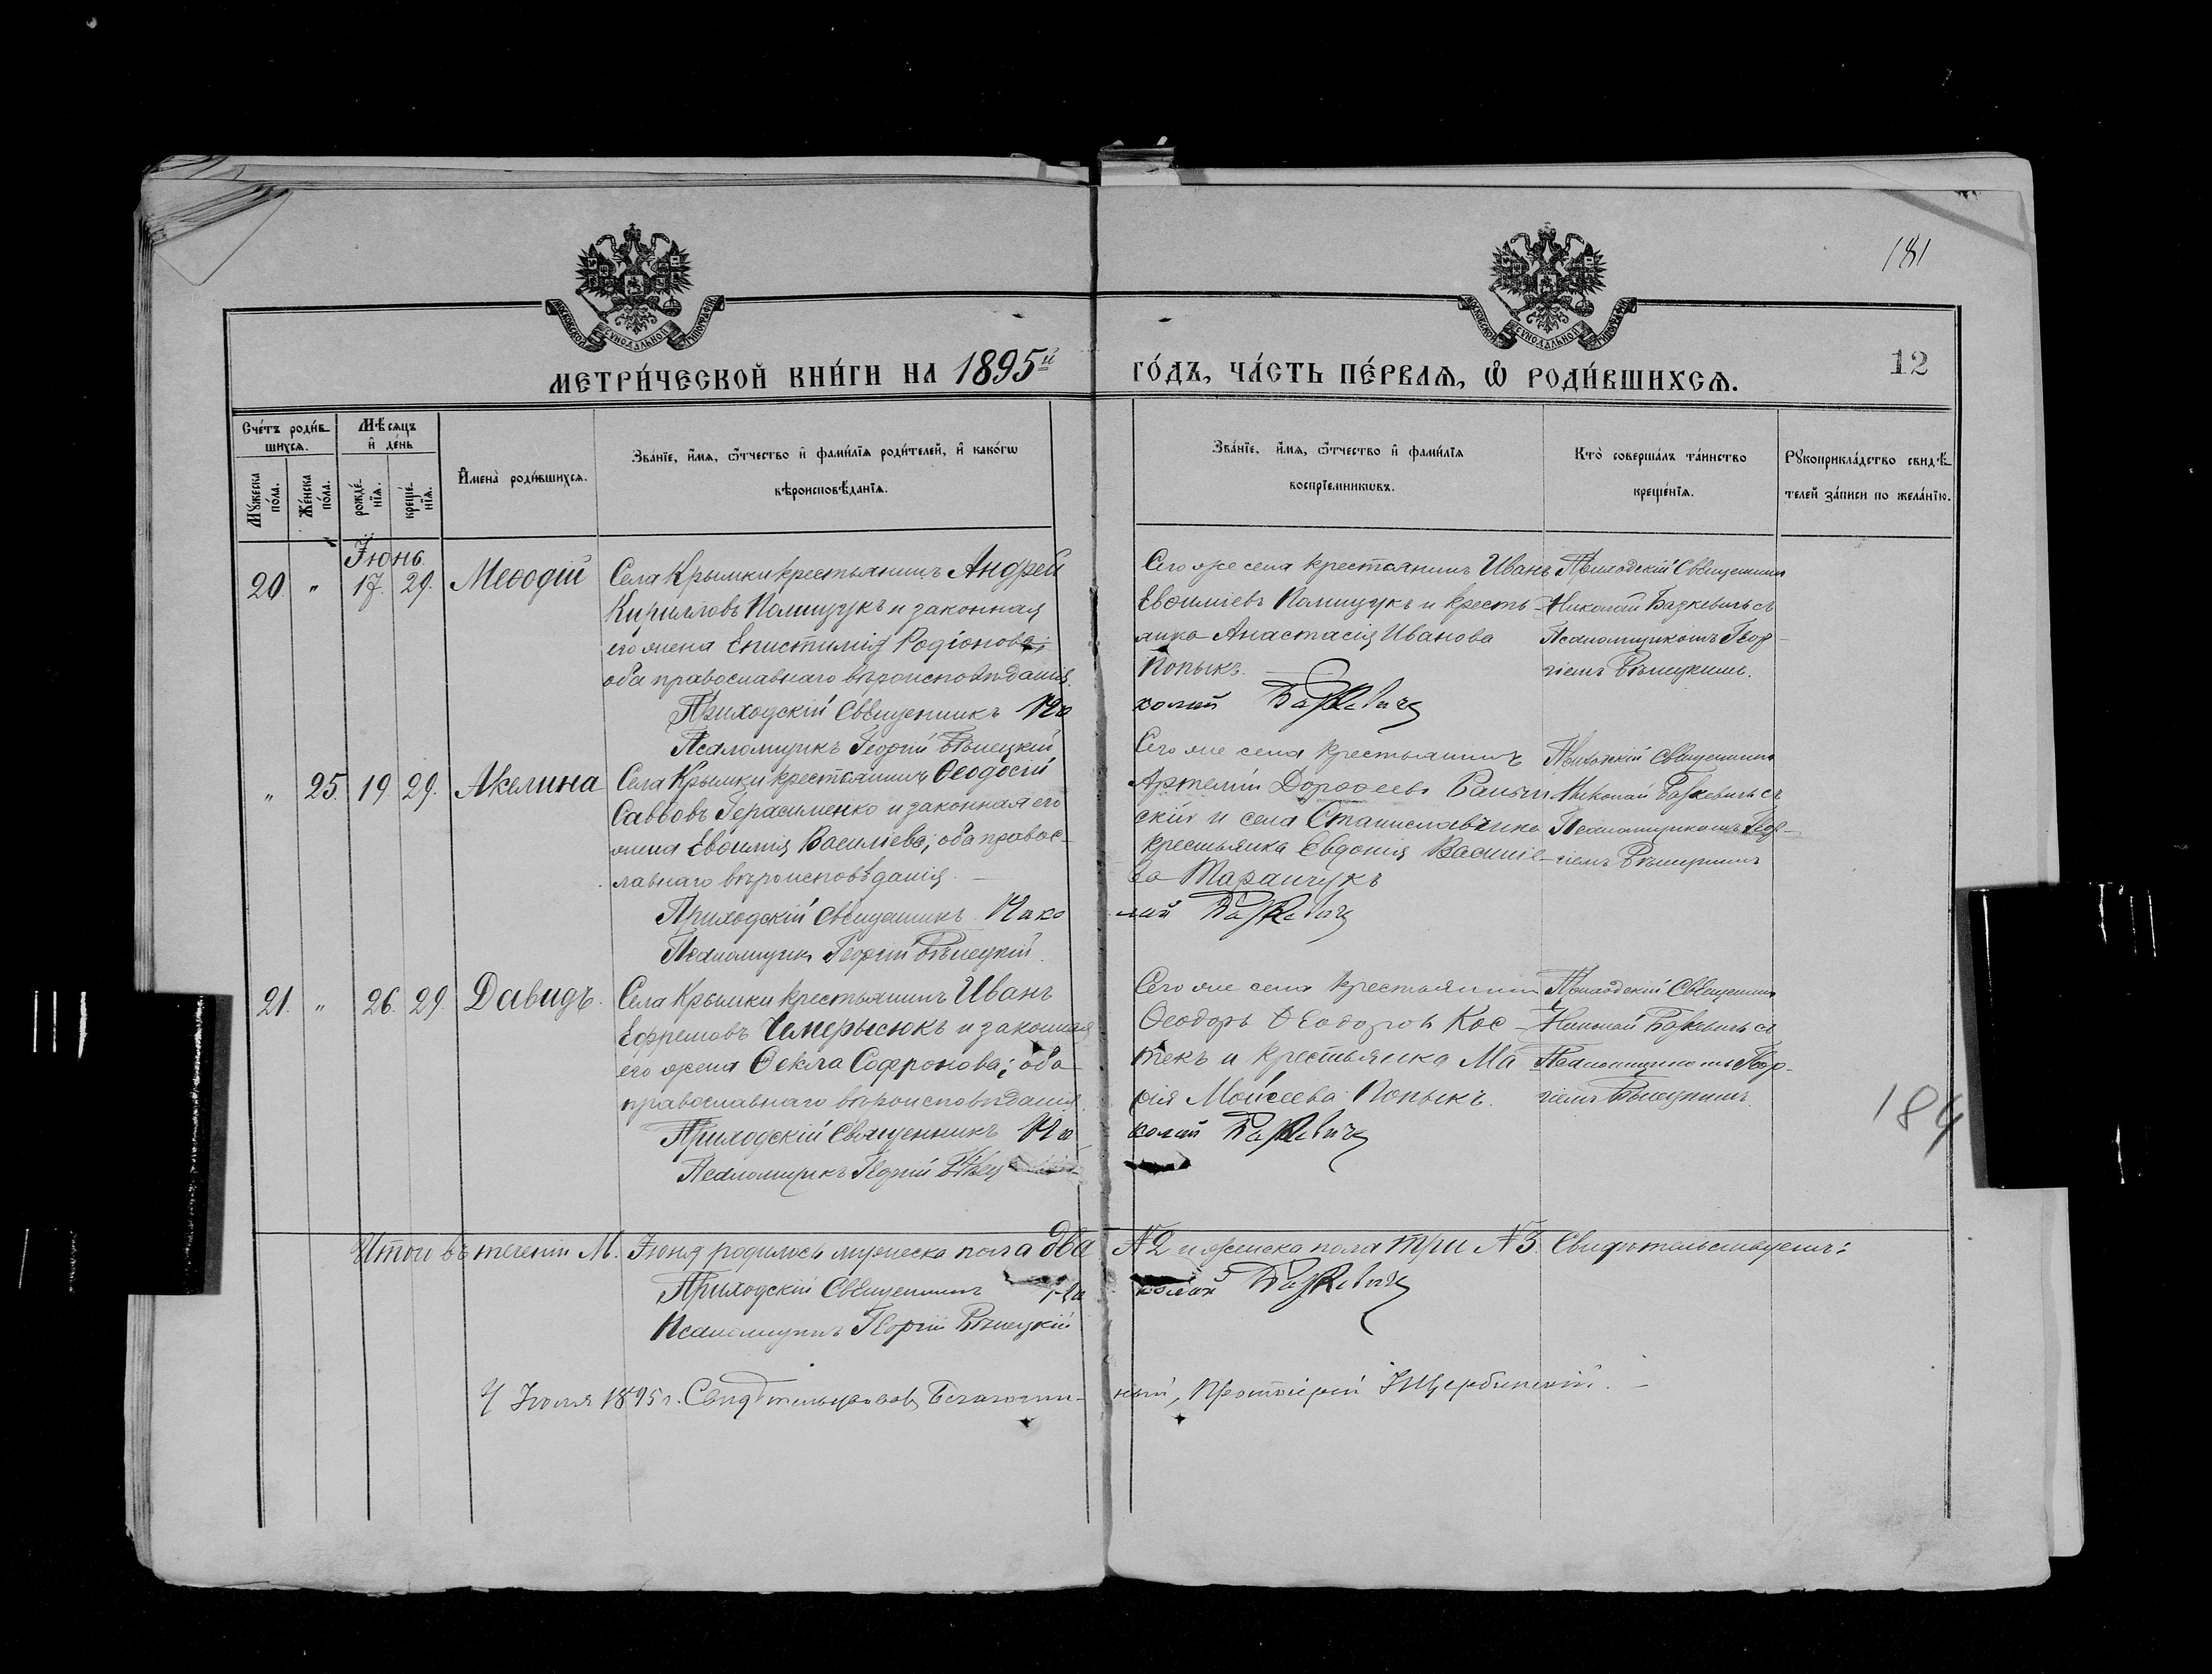 181
12
МОСКОВСКОЙ СѴНОДАЛЬНОЙ ТИПОГРАФІИ
МОСКОВСКОЙ СѴНОДАЛЬНОЙ ТИПОГРАФІИ
МЕТРИ́ЧЕСКОЙ КНИ́ГИ НА 1895й
ГО́ДЪ, ЧА́СТЬ ПЕ́РВАѦ, Ѡ҆ РОДИ́ВШИХСѦ.
Сче́тъ роди́в-
шихсѧ.
Мꙋжеска по́ла.
Же́нска по́ла.
Мѣ́сѧцъ
и҆ де́нь
рожде́-
нїѧ.
креще́-
нїѧ.
И҆мена̀ роди́вшихсѧ.
Зва́нїе, и҆́мѧ, ѻ҆́тчество и҆ фами́лїѧ роди́телей, и҆ како́гѡ
вѣроисповѣ́данїѧ.
Зва́нїе, и҆́мѧ, ѻ҆́тчество и҆ фами́лїѧ
воспрїе́мникѡвъ.
Кто̀ соверша́лъ та́инство
креще́нїѧ.
Рꙋкоприкла́дство свидѣ́-
телей за́писи по жела́нїю.
Іюнь
20. " 17. 29. Меѳодій
Села Крымки крестьянинъ Андрей
Кирилловъ Полищукъ и законная
его жена Епистимія Родіонова;
оба православнаго вѣроисповѣданія.
Приходскій Священникъ Ни
Псаломщикъ Георгій Вѣнецкій
Сего же села крестьянинъ Иванъ
Евѳиміевъ Полищукъ и кресть-
янка Анастасія Иванова
Попыкъ.
колай
Приходскій Священникъ
Николай съ
Псаломщикомъ Геор-
гіемъ Вѣнецкимъ.
" 25. 19. 29. Акелина
Села Крымки крестьянинъ Ѳеодосій
Саввовъ Герасименко и законная его
жена Евѳимія Василіева; оба правос-
лавнаго вѣроисповѣданія.
Приходскій Священникъ Нико
Псаломщикъ Георгій Вѣнецкій.
Сего же села крестьянинъ
Артемій Дороѳеевъ
скій и села Станиславчика
крестьянка Евдокія Василіе-
ва Таранчукъ
лай
Приходскій Священникъ
Николай съ
Псаломщикомъ Геор-
гіемъ Вѣнецкимъ
21. " 26. 29. Давидъ.
Села Крымки крестьянинъ Иванъ
Ефремовъ Чемерысюкъ и законная
его жена Ѳекла Софронова; оба
православнаго вѣроисповѣданія.
Приходскій Священникъ Ни
Псаломщикъ Георгій Вѣнец
Сего же села крестьянинъ
Ѳеодоръ Ѳеодоровъ Кос-
текъ и крестьянка Ма
рія Моисеева Попыкъ.
колай
Приходскій Священникъ
Николай съ
Псаломщикомъ Геор-
гіемъ Вѣнецкимъ.
184
Итого въ теченіи М. Іюня родилось мужеска пола два №2 и женска пола три №3. Свидѣтельствуемъ:
Приходскій Священникъ Ни колай
Псаломщикъ Георгій Вѣнецкій
4 Іюля 1895 г. Свидѣтельствовалъ Благочин-
ный, Протоіерей Щербинскій.